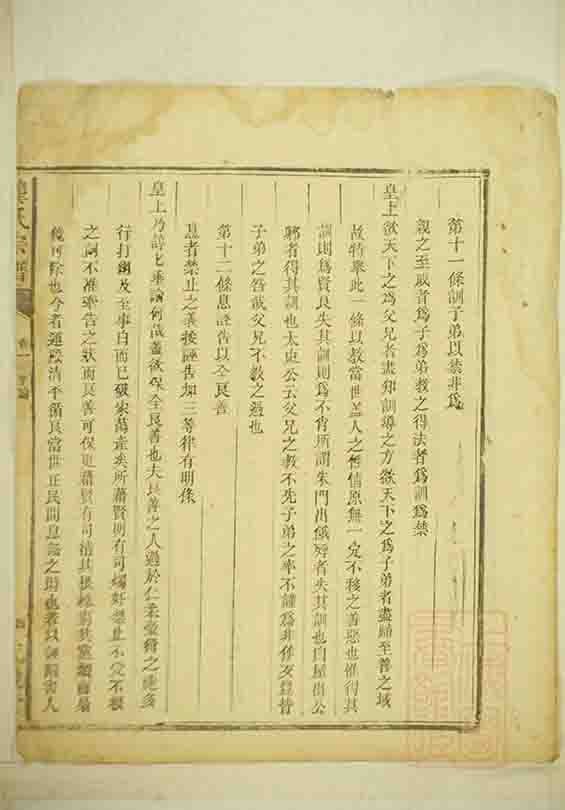 第十一條訓子弟以禁非為
親之至戚者為子為弟教之得法者為訓為禁
皇上欲天下之為父兄者盡知訓導之方欲天下之為子弟者盡歸至善之域
故特舉此一條以教當世蓋人之性情原無一定不移之善惡也惟得其
訓則為賢良失其訓則為不肖所謂朱門出餓殍者失其訓也白屋出公
卿者得其訓也太史公云父兄之教不先子弟之率不謹為非作歹豈皆
子弟之咎哉父兄不教之過也
第十二條息誣告以全良善
息者禁止之義按誣告加三等律有明條
皇上乃諄七垂諭何哉蓋欲保全良善也夫良善之人過於仁柔
行打至事白而已破家蕩產矣所藉賢明有司燭奸禁止不
之詞不准牽告之狀而良善可保更藉賢有司清其根
幾可除也今者運際清平循良當世正民間息訟之時也若以誣賴害人
氏宗譜
卷一